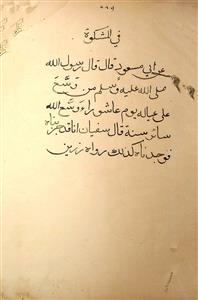 في المشكوة
عن ابي مسعود قال قال رسول الله
صلى الله عليه وسلم من وسّع
على عياله يوم عاشوراء وسّع الله
سائر سنة قال سفيان انا قد جربناه
فوجدناه كذلك رواه رزين